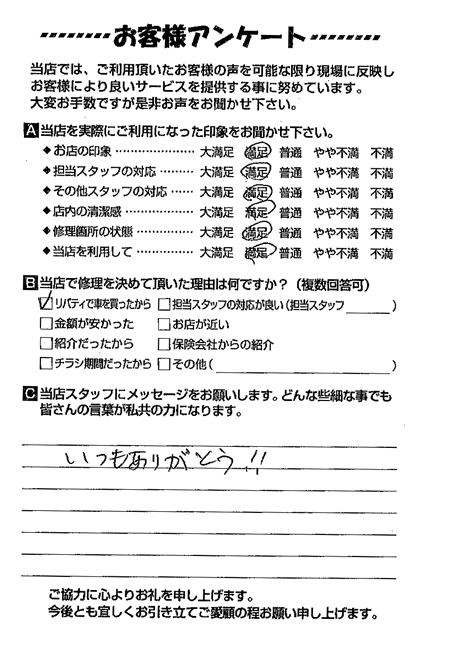 お客様アンケート
当店では、ご利用頂いたお客様の声を可能な限り現場に反映し
お客様により良いサービスを提供する事に努めています。
大変お手数ですが是非お声をお聞かせ下さい。
A 当店を実際にご利用になった印象をお聞かせ下さい。
◆お店の印象 ………………… 大満足 満足 普通 やや不満 不満
◆担当スタッフの対応 ………… 大満足 満足 普通 やや不満 不満
◆その他スタッフの対応 ……… 大満足 満足 普通 やや不満 不満
◆店内の清潔感 ……………… 大満足 満足 普通 やや不満 不満
◆修理箇所の状態 …………… 大満足 満足 普通 やや不満 不満
◆当店を利用して …………… 大満足 満足 普通 やや不満 不満
B 当店で修理を決めて頂いた理由は何ですか？（複数回答可）
☑リバティで車を買ったから □担当スタッフの対応が良い（担当スタッフ＿＿＿＿）
□金額が安かった □お店が近い
□紹介だったから □保険会社からの紹介
□チラシ期間だったから □その他（＿＿＿＿＿＿＿＿）
C 当店スタッフにメッセージをお願いします。どんな些細な事でも
皆さんの言葉が私共の力になります。
いつもありがとう!!
ご協力に心よりお礼を申し上げます。
今後とも宜しくお引き立てご愛顧の程お願い申し上げます。